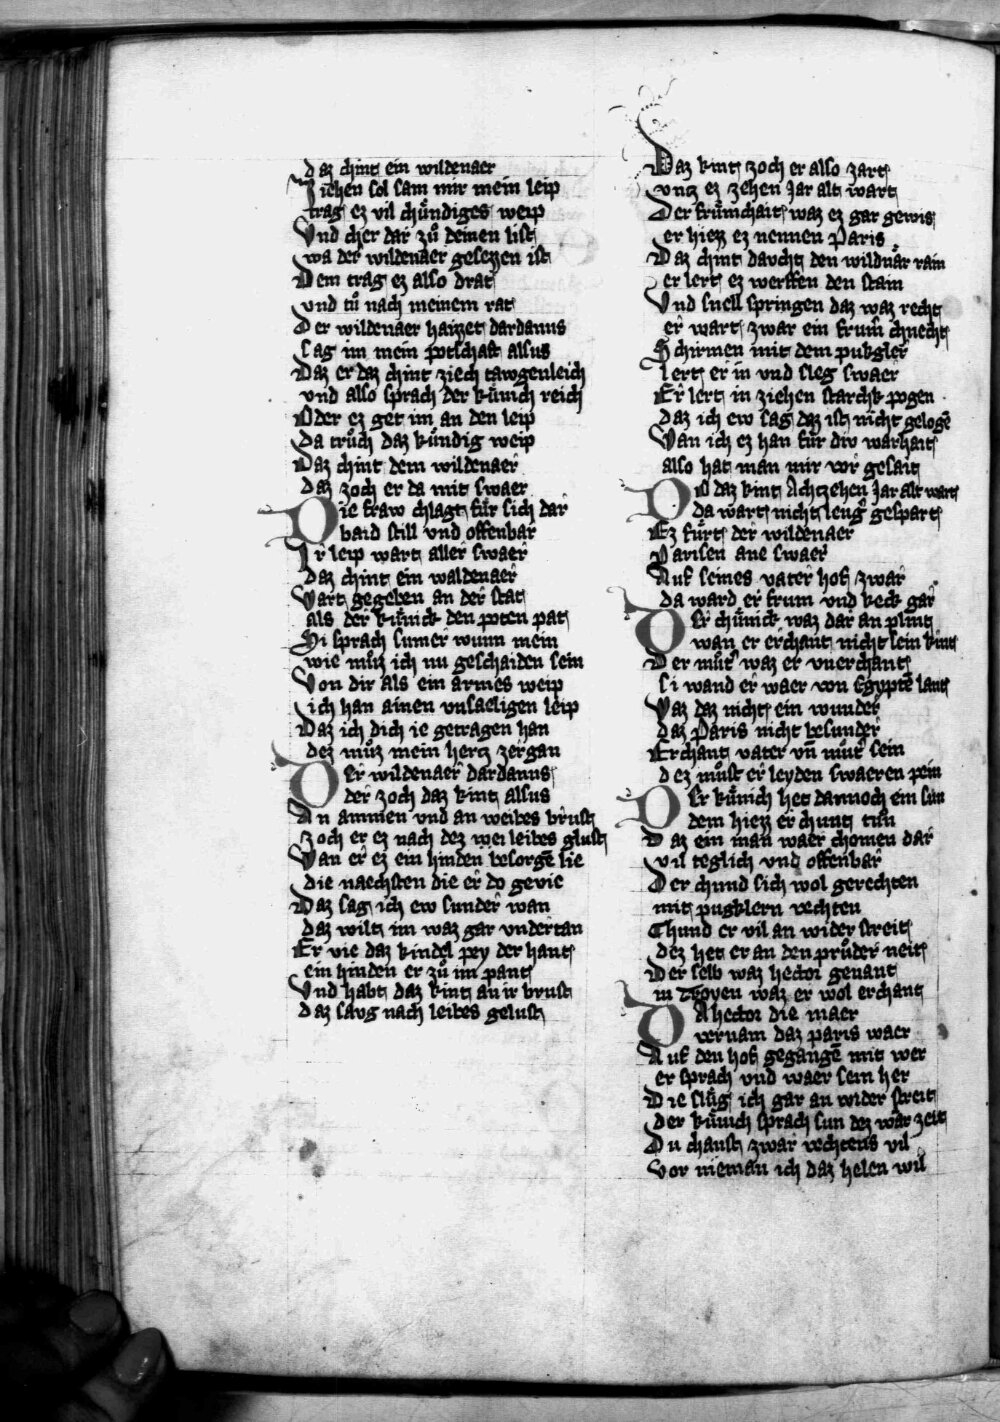 daz chint ein wildenaer
Ziehen sol sam mir mein leip
trag ez vil chündiges weip
Vnd cher dar zů deinen list
wa der wildenaer gesezzen ist
Dem trag ez also drat
vnd tů nach meinem rat
Der wildenaer haizzet dardanus
sag im mein potschaft alsus
Daz er daz chint ziech tawgenleich
vnd also sprach der künich reich
Oder ez get im an den leip
da trůch daz kündig weip
Daz chint dem wildenaer
daz zoch er da mit swaer
Die fraw chlagt für sich dar
baid still vnd offenbar
Ir leip wart aller swaer
daz chint ein waldenaer
Wart gegeben an der stat
als der künick den poten pat
Si sprach sumer wunn mein
wie můz ich nu geschaiden sein
Von dir als ein armes weip
ich han ainen vnsaeligen leip
Daz ich dich ie getragen han
dez můz mein hertz zergan
Der wildenaer dardanus
der zoch daz kint alsus
An ammen vnd an weibes brust
zoch er ez nach dez wei leibes glust
Wan er ez ein hinden besorgē lie
die naechsten die er do gevie
Daz sag ich ew sunder wan
daz wilt im waz gar vndertan
Er vie daz kindel pey der hant
ein hinden er zů im pant
Vnd habt daz kint an ir brust
daz saug nach leibes gelust
Daz kint zoch er also zart
vntz ez zehen Jar alt wart
Der frümchait waz ez gar gewis
er hiez ez nennen Paris
Daz chint daucht den wildnår rain
er lert ez werffen den stain
Vnd snell springen daz waz recht
er wart zwar ein frum chnecht
Schirmen mit dem pukgler
lert er in vnd sleg swaer
Er lert in ziehen starchk pogen
daz ich ew sag daz ist nicht gelogē
Wan ich ez han für div warhait
also hat man mir vor gesait
Do daz kint Achtzehen Jar alt wart
da wart nicht leng gespart
Ez fürt der wildenaer
Parisen ane swaer
Auf seines vater hof zwar
da ward er frum vnd keck gar
Der chünick waz dar an plint
wan er erchant nicht sein kint
Der můt waz er vnerchant
si wand er waer von Egyptē lant
Waz daz nicht ein wunder
daz Paris nicht besunder
Erchant vater vn̄ můt sein
dez můst er leyden swaeren pein
Der künich het dannoch ein sun
dem hiez er chunt tůn
Daz ein man waer chomen dar
vil teglich vnd offenbar
Der chund sich wol gerechten
mit pugklern vechten
Chund er vil an wider streit
dez het er an den průder neit
Der selb waz hector genant
in Troyen waz er wol erchant
Da hector die maer
vernam daz paris waer
Auf den hof gegangē mit wer
er sprach vnd waer sein her
Die slůg ich gar an wider streit
der künich sprach sun dez war zeit
Du chanst zwar vechtens vil
vor nieman ich daz helen wil